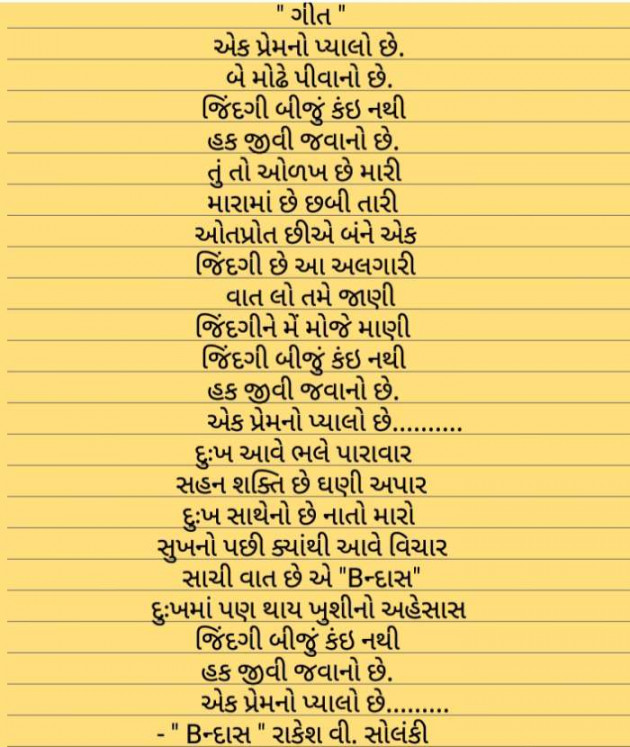 " ગીત "
એક પ્રેમનો પ્યાલો છે.
બે મોઢે પીવાનો છે.
જિંદગી બીજું કંઇ નથી
હક જીવી જવાનો છે.
તું તો ઓળખ છે મારી
મારામાં છે છબી તારી
ઓતપ્રોત છીએ બંને એક
જિંદગી છે આ અલગારી
વાત લો તમે જાણી
જિંદગીને મેં મોજે માણી
જિંદગી બીજું કંઇ નથી
હક જીવી જવાનો છે.
એક પ્રેમનો પ્યાલો છે..........
દુઃખ આવે ભલે પારાવાર
સહન શક્તિ છે ઘણી અપાર
દુઃખ સાથેનો છે નાતો મારો
સુખનો પછી ક્યાંથી આવે વિચાર
સાચી વાત છે એ "Bન્દાસ"
દુઃખમાં પણ થાય ખુશીનો અહેસાસ
જિંદગી બીજું કંઇ નથી
હક જીવી જવાનો છે.
એક પ્રેમનો પ્યાલો છે.........
- " Bન્દાસ " રાકેશ વી. સોલંકી